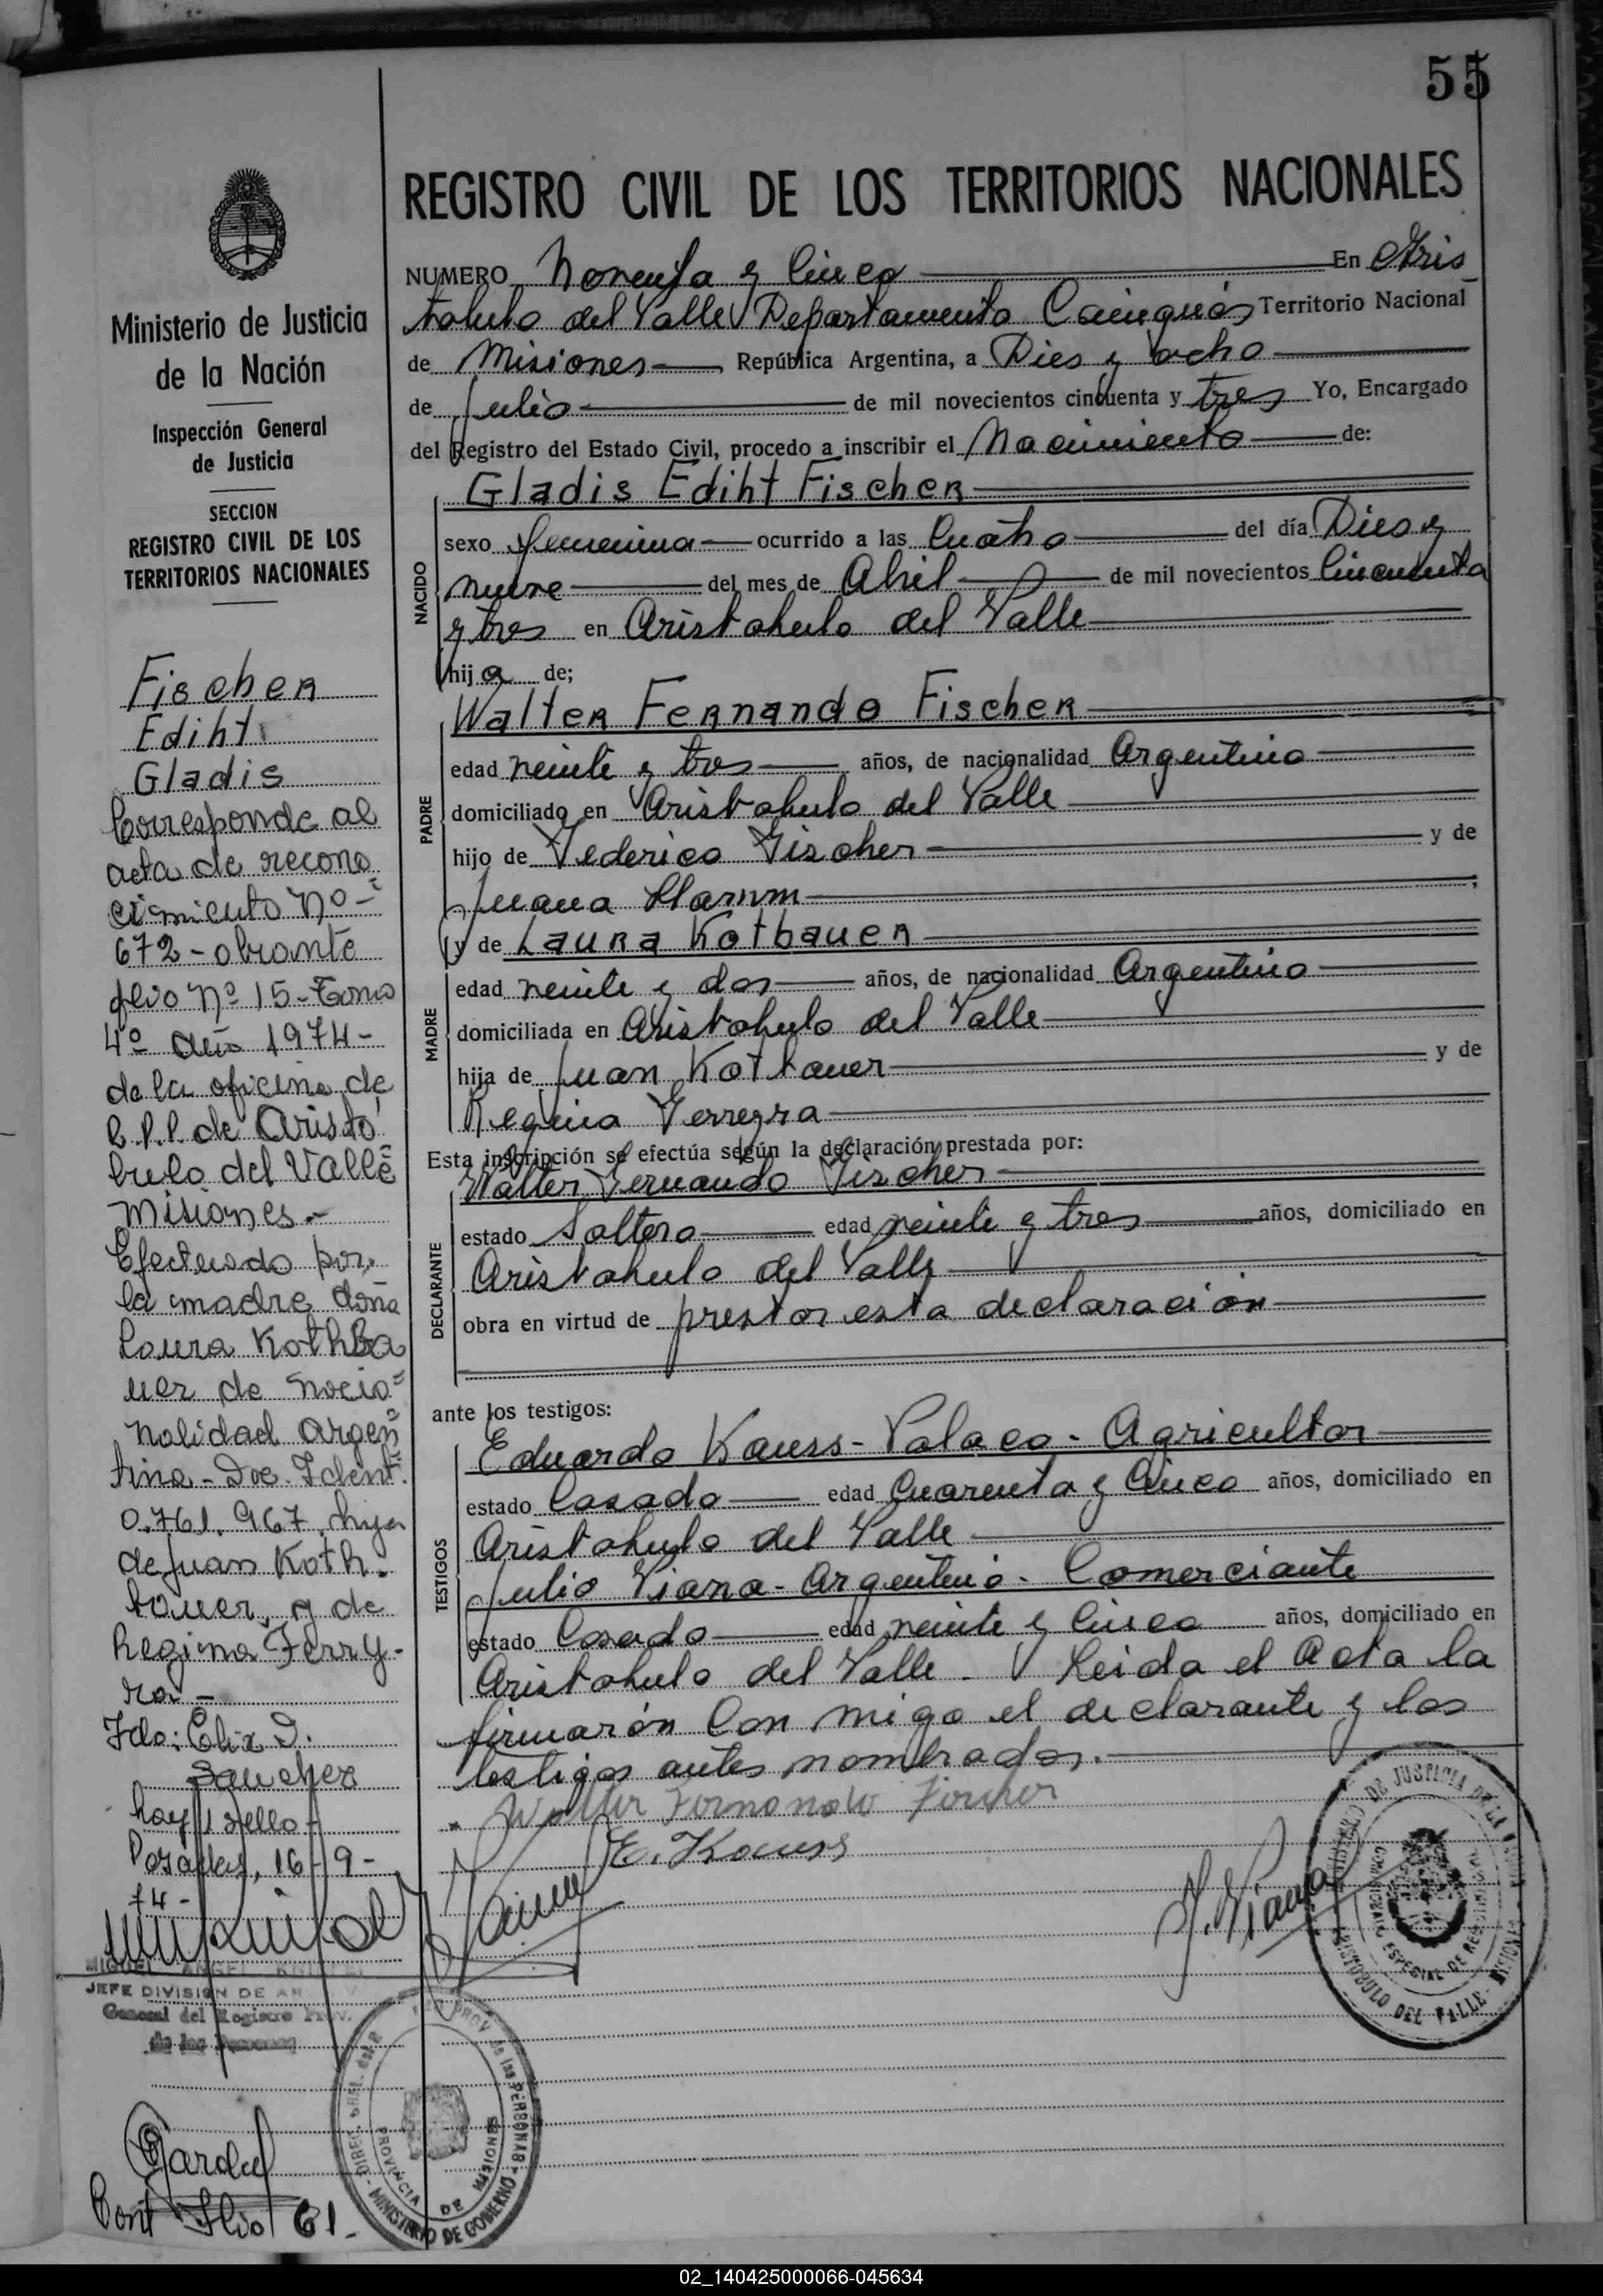 55
REGISTRO CIVIL DE LOS TERRITORIOS NACIONALES
NUMERO Noventa y Cinco En Aris
tobulo del Valle Departamento Cainguás Territorio Nacional
de Misiones República Argentina, a Dies y ocho
de Julio de mil novecientos cincuenta y tres Yo, Encargado
del Registro del Estado Civil, procedo a inscribir el Nacimiento de:
NACIDO
Gladis Ediht Fischer
sexo femenino ocurrido a las Cuatro del día Dies y
nueve del mes de Abril de mil novecientos Cincuenta
y tres en Aristobulo del Valle
hija de;
PADRE
Walter Fernando Fischer
edad veinte y tres años, de nacionalidad Argentino
domiciliado en Aristobulo del Valle
hijo de Federico Fischer y de
Juana Hamm ;
y de Laura Kotbauer
MADRE
edad veinte y dos años, de nacionalidad Argentino
domiciliada en Aristobulo del Valle
hija de Juan Kotbauer y de
Regina Ferreyra
Esta inscripción se efectúa según la declaración prestada por:
DECLARANTE
Walter Fernando Fischer
estado Soltero edad veinte y tres años, domiciliado en
Aristobulo del Valle
obra en virtud de prestar esta declaración
ante los testigos:
TESTIGOS
Eduardo Kauss - Polaco - Agricultor
estado Casado edad Cuarenta y Cinco años, domiciliado en
Aristobulo del Valle
Julio Viana - Argentino - Comerciante
estado Casado edad veinte y Cinco años, domiciliado en
Aristobulo del Valle - Leida el Acta la
firmarón Con migo el declarante y los
testigos antes nombrados.
Walter Fernando Fischer
E. Kauss
J. Viana
MINISTERIO DE JUSTICIA DE LA NACION
ARISTOBULO DEL VALLE - MISIONES
Ministerio de Justicia
de la Nación
Inspección General
de Justicia
SECCION
REGISTRO CIVIL DE LOS
TERRITORIOS NACIONALES
Fischer
Ediht
Gladis
Corresponde al
acta de recono
cimiento Nº -
672 - obrante
folio Nº 15 - Tomo
4º año 1974 -
de la oficina de
R.P.P. de Aristó
bulo del Valle
Misiones.-
Efectuado por
la madre doña
Laura KothBa
uer de nacio=
nalidad argen
tina - Doc. Ident.
0.761.967, hija
de Juan Koth-
bauer, y de
Regina Ferry-
ra -
Fdo: Elix D.
Sanchez
hay 1 sello -
Posadas, 16-9-
74 -
MIGUEL ANGEL
JEFE DIVISION DE
General del Registro Prov.
de las Personas
DIREC. GRAL. del R. PROV. de las PERSONAS
PROVINCIA DE MISIONES
MINISTERIO DE GOBIERNO
Cont Flio 61 -
02_140425000066-045634